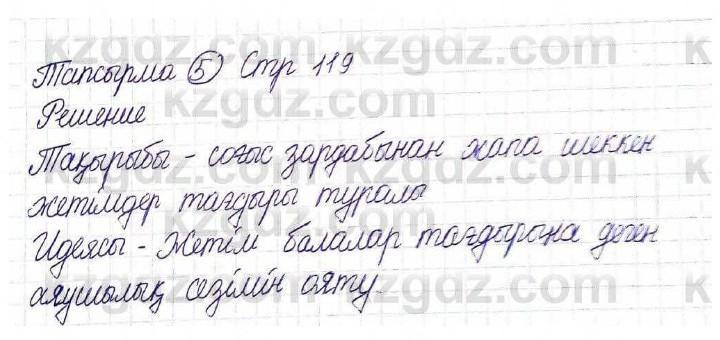 Тапсырма 5 Стр 119
Решение
Тақырыбы - соғыс зардабынан жапа шеккен
жетімдер тағдыры туралы
Идеясы - Жетім балалар тағдырына деген
аяушылық сезімін ояту
kzgdz.com